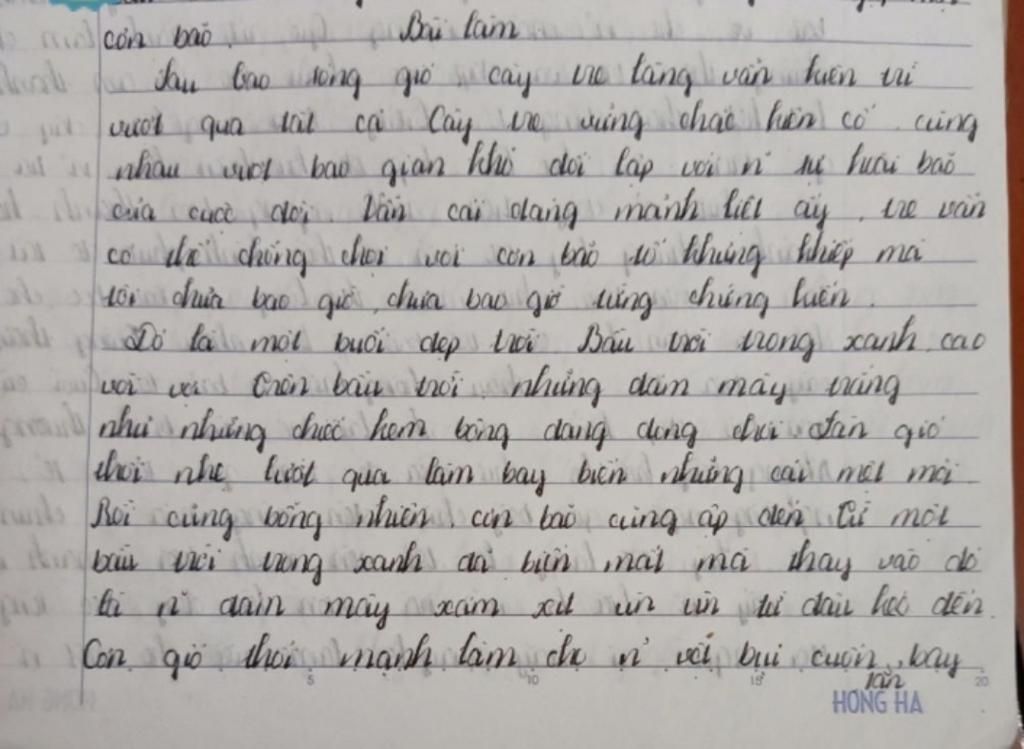 cơn bão. Bài làm
Sau bao sóng gió cây tre làng vẫn kiên trì
vượt qua tất cả Cây tre vững chắc kiên cố cùng
nhau vượt bao gian khổ đối lập với n~ sự bão
của cuộc đời. Vẫn cái dáng mảnh liệt ấy, tre vẫn
có thể chống chọi với cơn bão tố khủng khiếp mà
tôi chưa bao giờ, chưa bao giờ từng chứng kiến.
Đó là một buổi đẹp trời. Bầu trời trong xanh, cao
vời vợi Trên bầu trời những đám mây trắng
như những chiếc kem bông đang dạo chơi. Làn gió
thổi nhẹ lướt qua làm bay biến những cái mệt mỏi.
Rồi cũng bỗng nhiên, cơn bão cũng ập đến. Từ một
bầu trời trong xanh đã biến mất mà thay vào đó
là n~ đám mây xám xịt ùn ùn từ đâu kéo đến.
Cơn gió thổi mạnh làm cho n~ vết bụi cuộn bay
lên
HONG HA
5 10 15 20